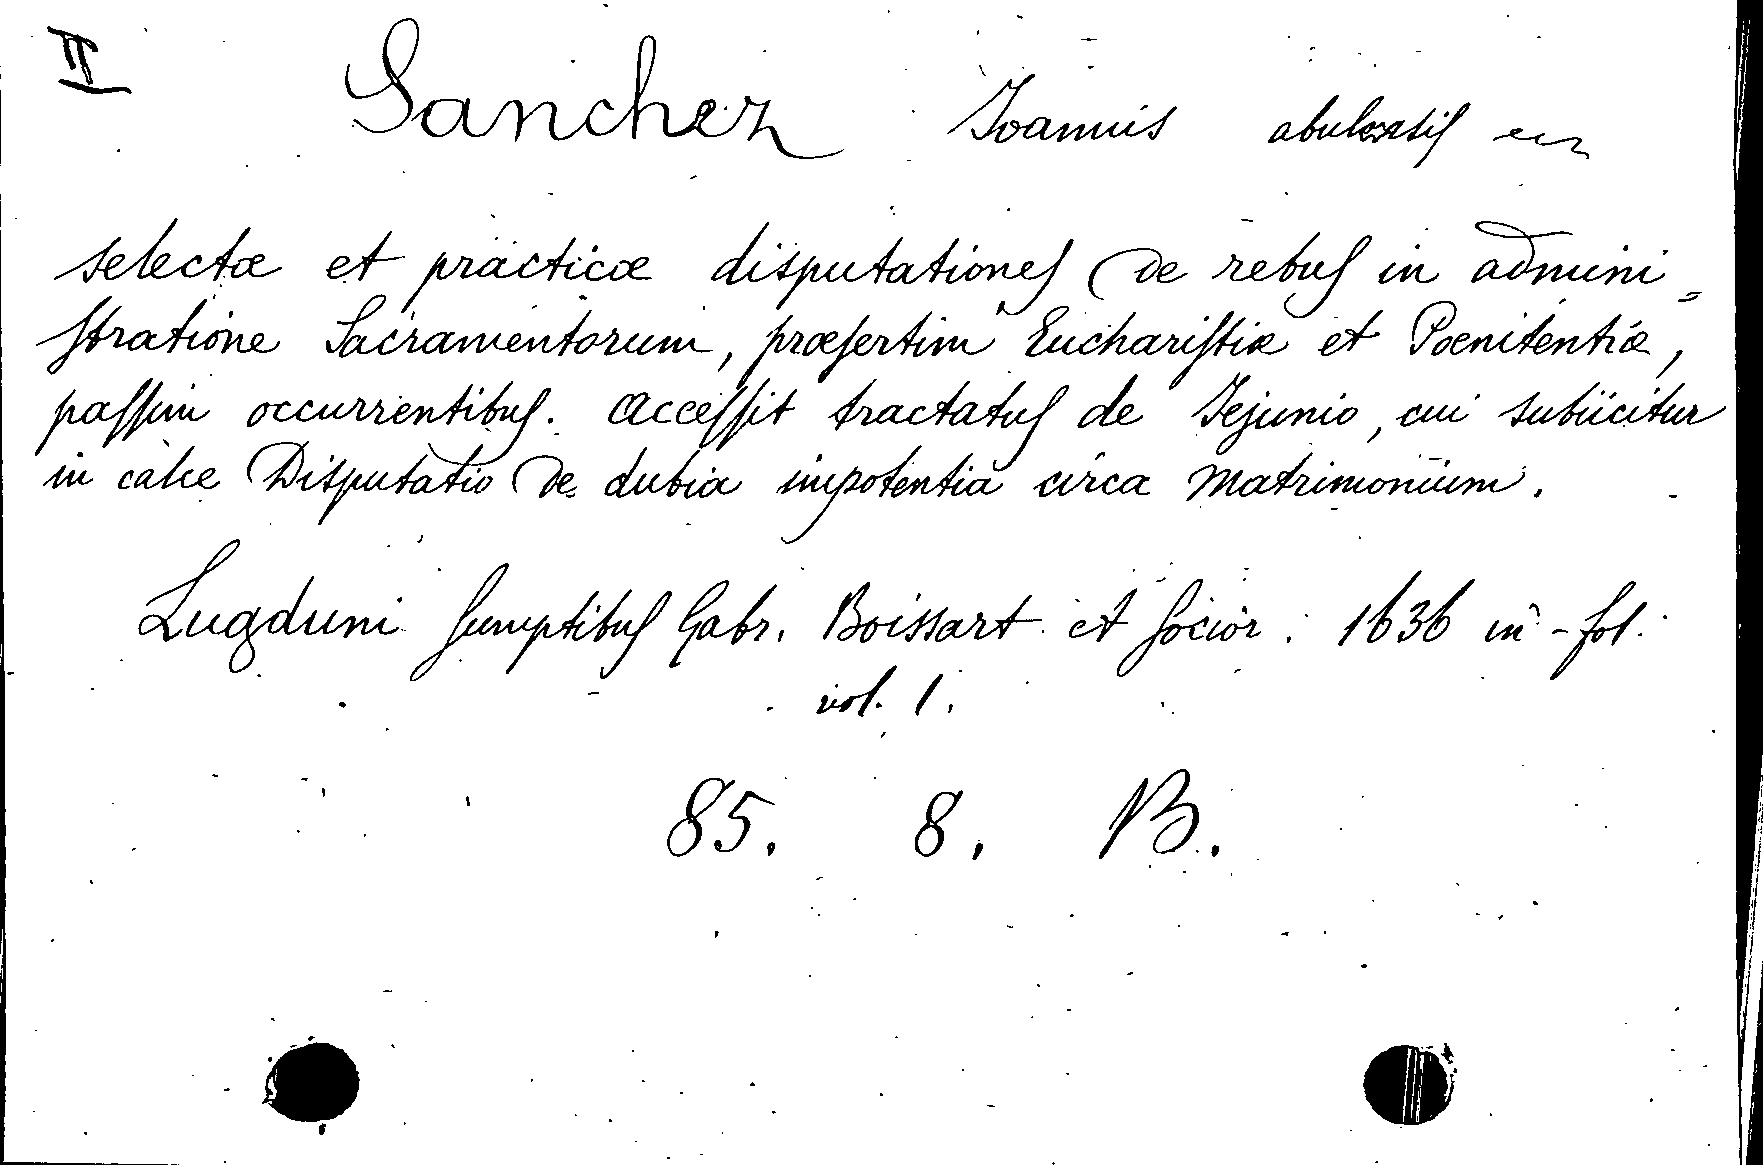 II
Sanchez Joannis abulensis
selectæ et practicæ disputationes de rebus in admini=
stratione Sacramentorum, præsertim Eucharistiæ et Poenitentiæ,
passim occurrentibus. Accessit tractatus de Jejunio, cui subiicitur
in calce Disputatio de dubia impotentia circa Matrimonium.
Lugduni sumptibus Gabr. Boissart et socior. 1636 in-fol.
vol. 1.
85. 8. B.